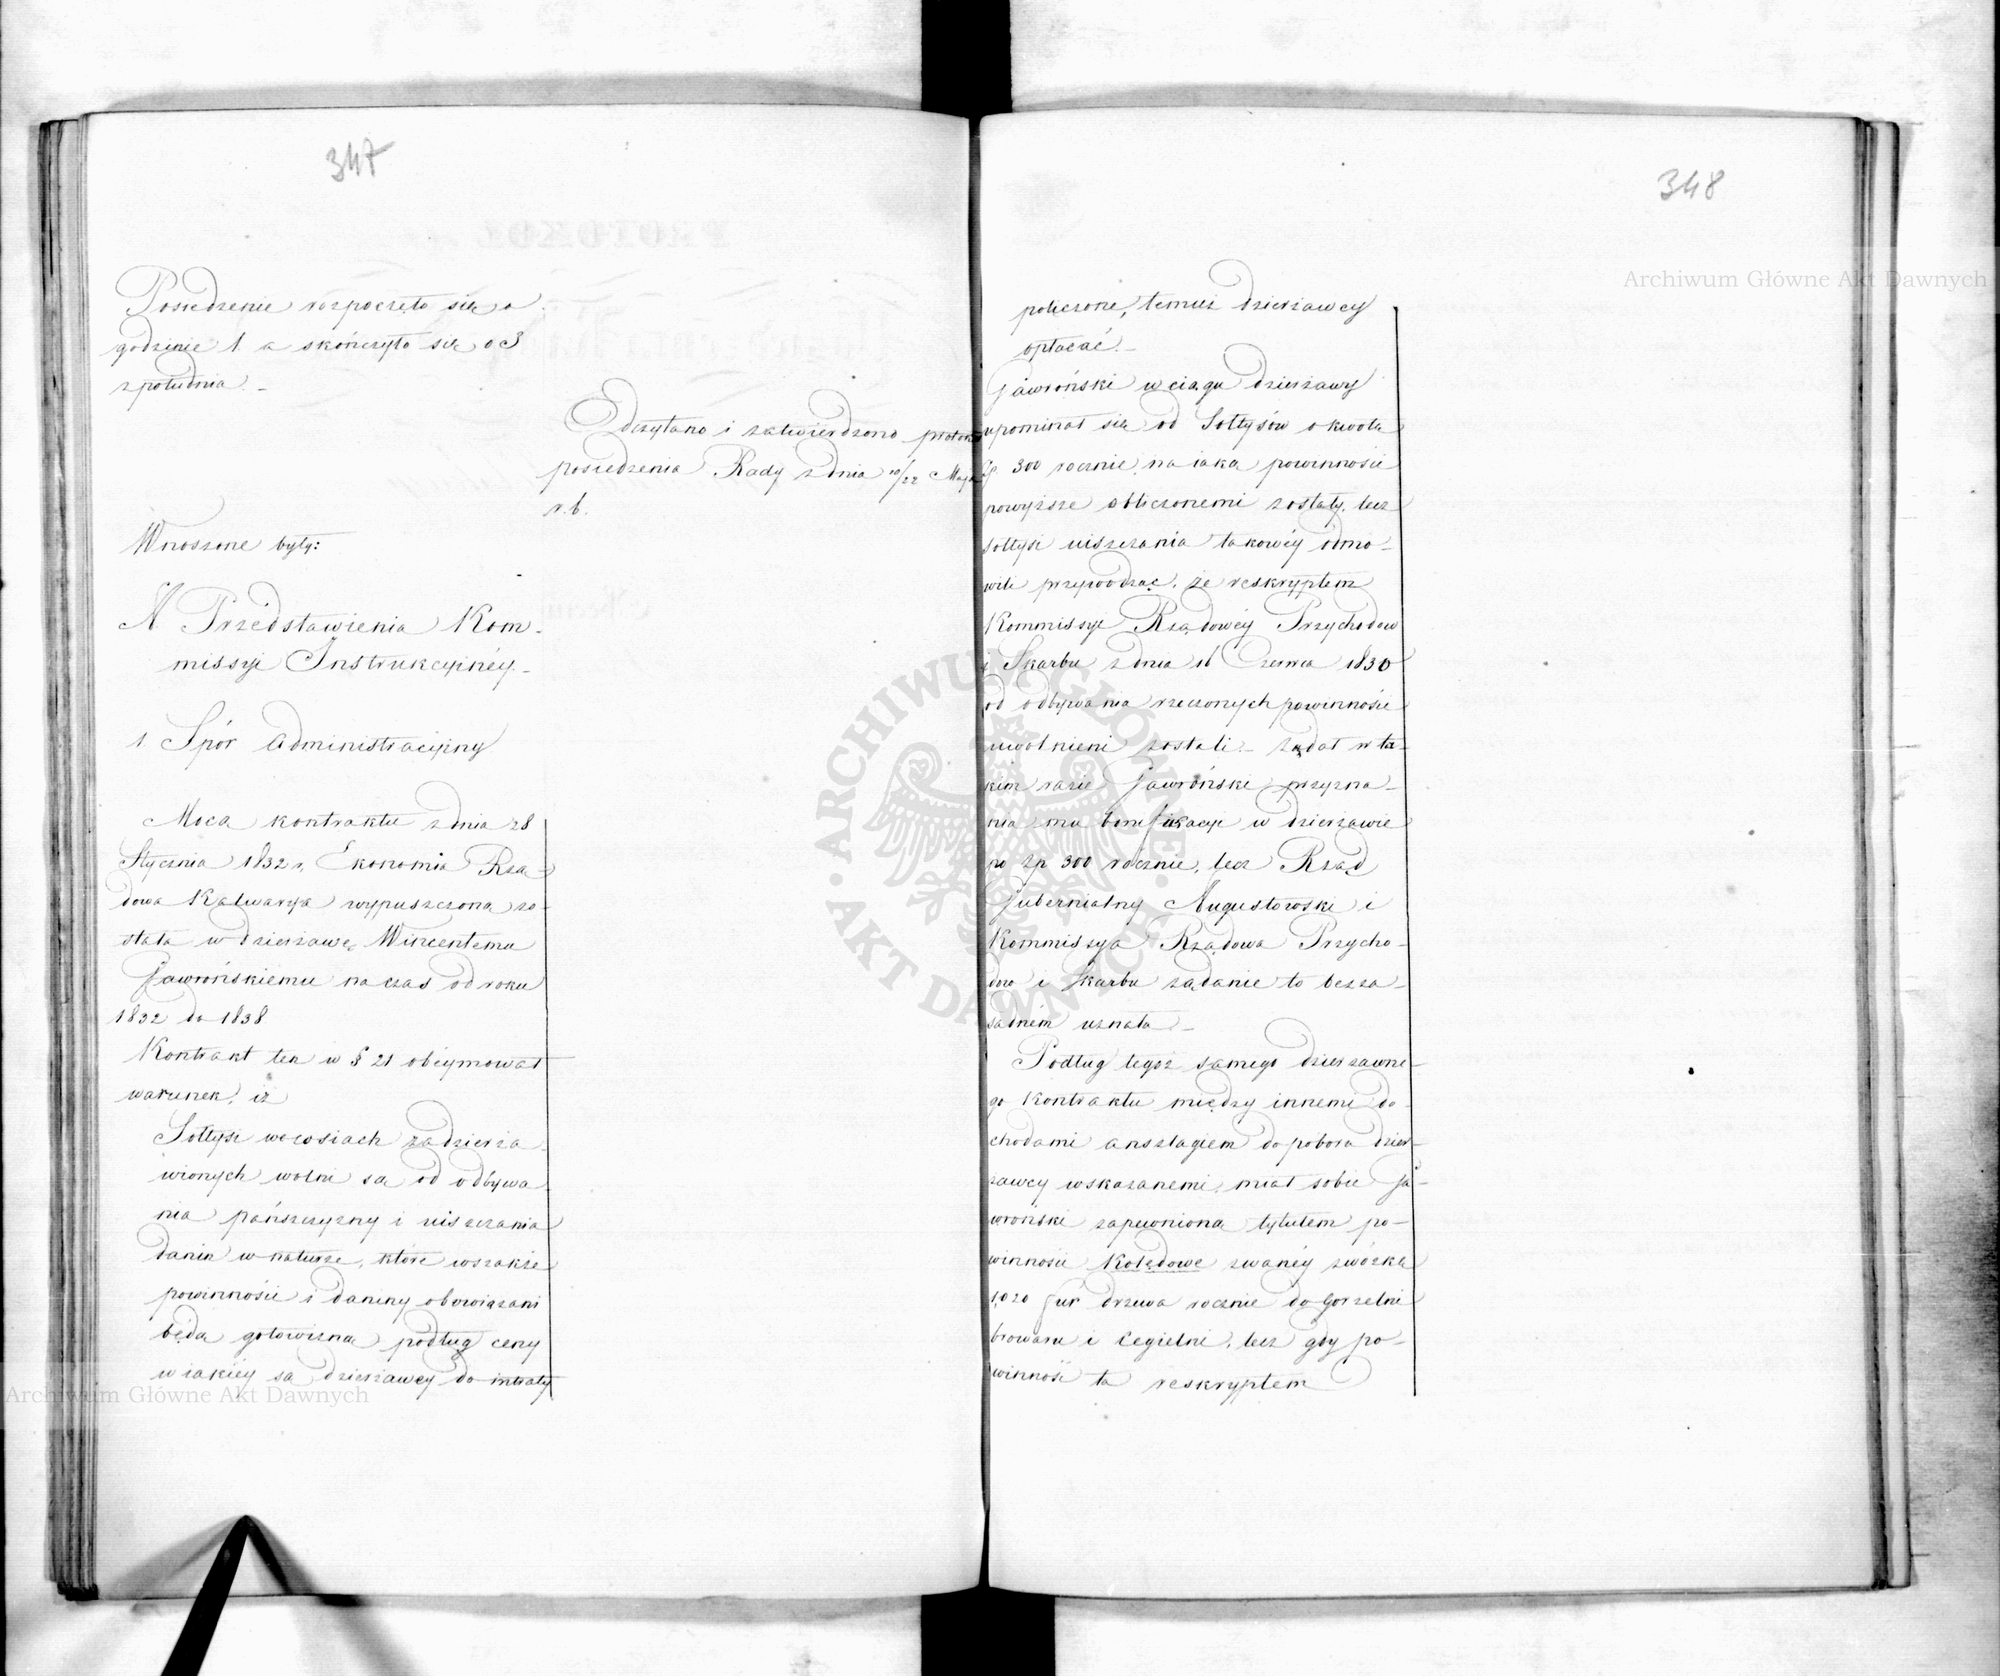 347
Posiedzenie rozpoczęto się o
godzinie 1. a skończyło się o 3
z południa. _
Odczytano i zatwierdzono protok
posiedzenia Rady z dnia 10/22 Maja
r. b.
Wnoszone były:
A. Przedstawienia Kom-
missyi Instrukcyinéy. _
1. Spór administracyiny
Mocą kontraktu z dnia 28
Stycznia 1832 r. Ekonomia Rzą-
dowa Kalwarya wypuszczona zo-
stała w dzierżawę Wincentemu
Gawrońskiemu na czas od roku
1832 do 1838
Kontrakt ten w § 21 obéymował
warunek, iż
Sołtysi we wsiach zadzierża-
wionych wolni są od odbywa-
nia pańszczyzny i uiszczania
danin w naturze, które wszakże
powinności i daniny obowiązani
będą gotowizną podług ceny
w iakiéy są dzierżawcy do intraty
348
policzone, temuż dzierżawcy
opłacać. _
Gawroński w ciągu dzierżawy
upominał się od Sołtysów o kwotę
zp. 300 rocznie na iaką powinności
powyższe obliczonemi zostały, lecz
sołtysi uiszczania takowéy odmó-
wili przywodząc, że reskryptem
Kommissyi Rządowéy Przychodow
i Skarbu z dnia 16 Czerwca 1830
od odbywania rzeczonych powinności
uwolnieni zostali. _ Żądał w ta-
kim razie Gawroński przyzna-
nia mu bonifikacyi w dzierżawie
po zp 300 rocznie, lecz Rząd
Gubernialny Augustowski i
Kommissya Rządowa Przycho-
dow i Skarbu żądanie to bezza-
sadném uznała _
Podług tegoż samego dzierżawne-
go Kontraktu między innemi do-
chodami ansztagiem do poboru dzier-
żawcy wskazanemi, miał sobie Ga-
wroński zapewnioną tytułem po-
winności Kolędowe zwanéy zwózkę
1,020 fur drzewa rocznie do gorzelni
browaru i cegielni, lecz gdy po-
winność ta reskryptem
Archiwum Główne Akt Dawnych
Archiwum Główne Akt Dawnych
ARCHIWUM GŁÓWNE · AKT DAWNYCH ·